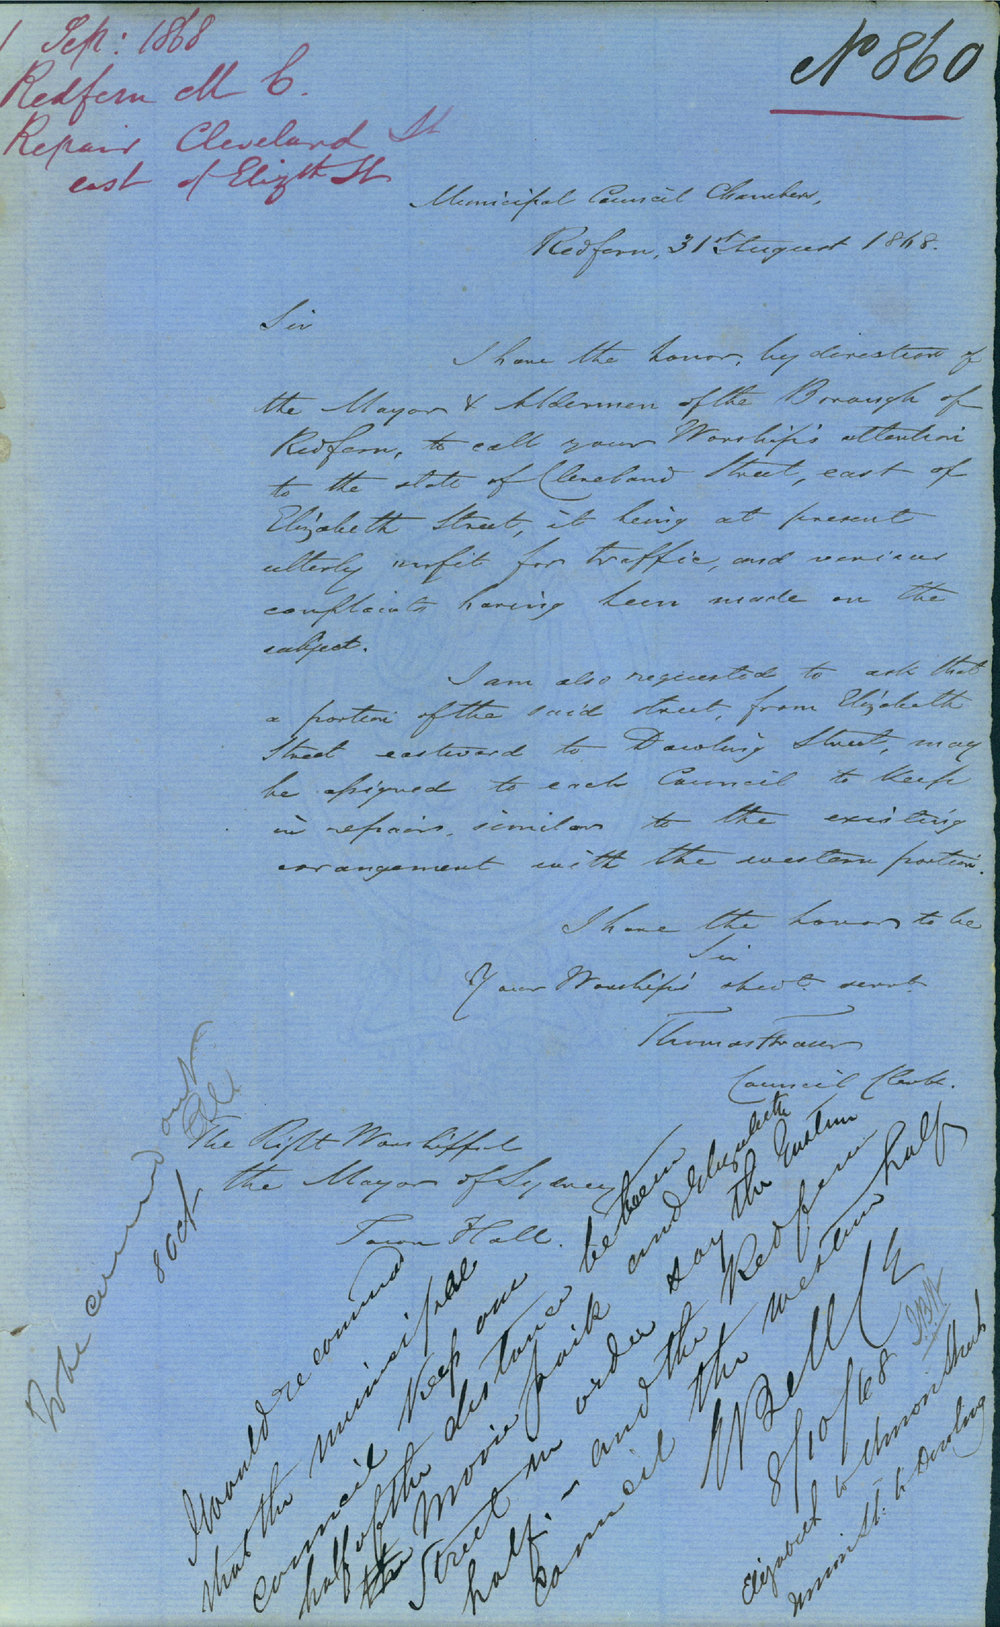 1 Sep: 1868
Redfern M C.
Repair Cleveland St
east of Elizth St
No 860
Municipal Council Chambers,
Redfern, 31st August 1868.
Sir
I have the honor, by direction of
the Mayor & Aldermen of the Borough of
Redfern, to call your Worship's attention
to the state of Cleveland Street, east of
Elizabeth Street, it being at present
utterly unfit for traffic, and various
complaints having been made on the
subject.
I am also requested to ask that
a portion of the said street, from Elizabeth
Street eastward to Dowling Street, may
be assigned to each Council to keep
in repair, similar to the existing
arrangement with the western portion.
I have the honor to be
Sir
Your Worship's obedt. servt.
Thomas
Council Clerk.
The Right Worshipful
the Mayor of Sydney
Town Hall.
To be carried out
8 Oct
I would recommend
that the municipal
council keep one
half of the distance between
the Moore park and Elizabeth
Street in order say the Eastern
half. – and the Redfern
council the western half
W Bell CE
8/10/68
Elizabeth to Union Street
Union St. to Dowling